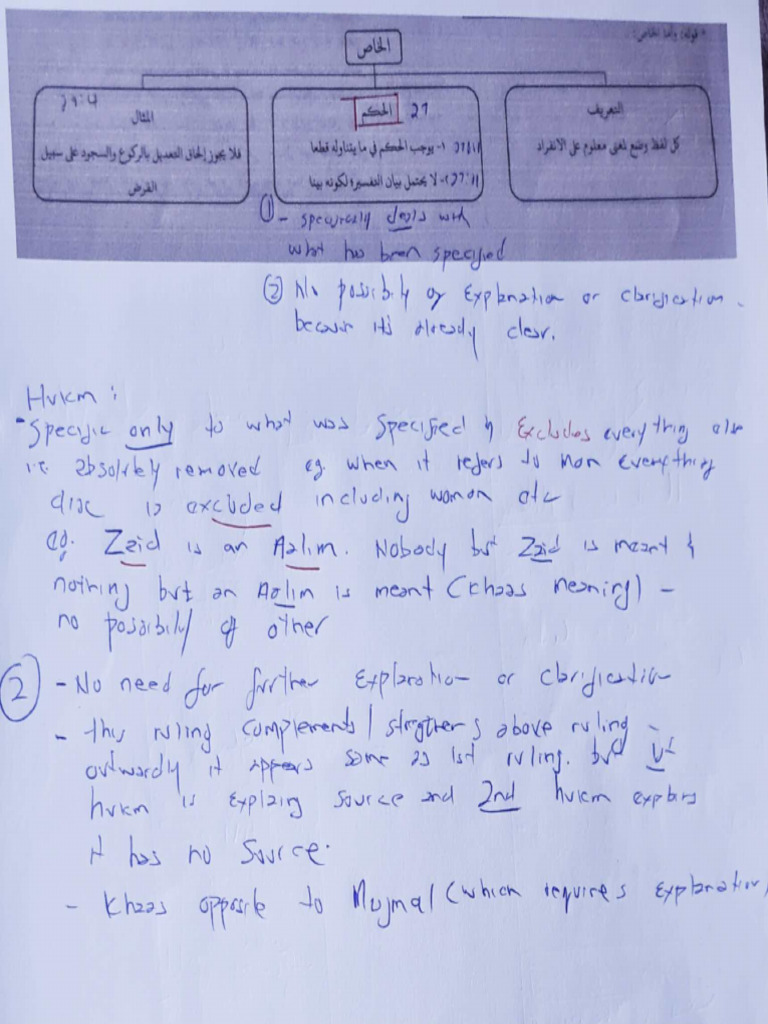 قوله: وأما الخاص:
الخاص
التعريف
كل لفظ وضع لمعنى معلوم على الانفراد
الحكم 27
١- يوجب الحكم في ما يتناوله قطعا
٢- لا يحتمل بيان التفسير لكونه بينا
29:4
المثال
فلا يجوز إلحاق التعديل بالركوع والسجود على سبيل
الفرض
① - specifically deals with
what has been specified
② No possibily of Explanation or clarification.
because its already clear.
Hukm :
- Specific only to what was specified & Excludes everything else
i.e. absolutely removed eg when it refers to man everything
is excluded including woman etc
eg. Zaid is an Aalim. Nobody but Zaid is meant &
nothing but an Aalim is meant (Khaas meaning) -
no possibily of other
② - No need for further Explanation or clarification
- this ruling complements / above ruling -
outwardly it appears same as 1st ruling. but 1st
hukm is source and 2nd hukm
it has no source.
- Khaas opposite to Mujmal (which requires explanation)